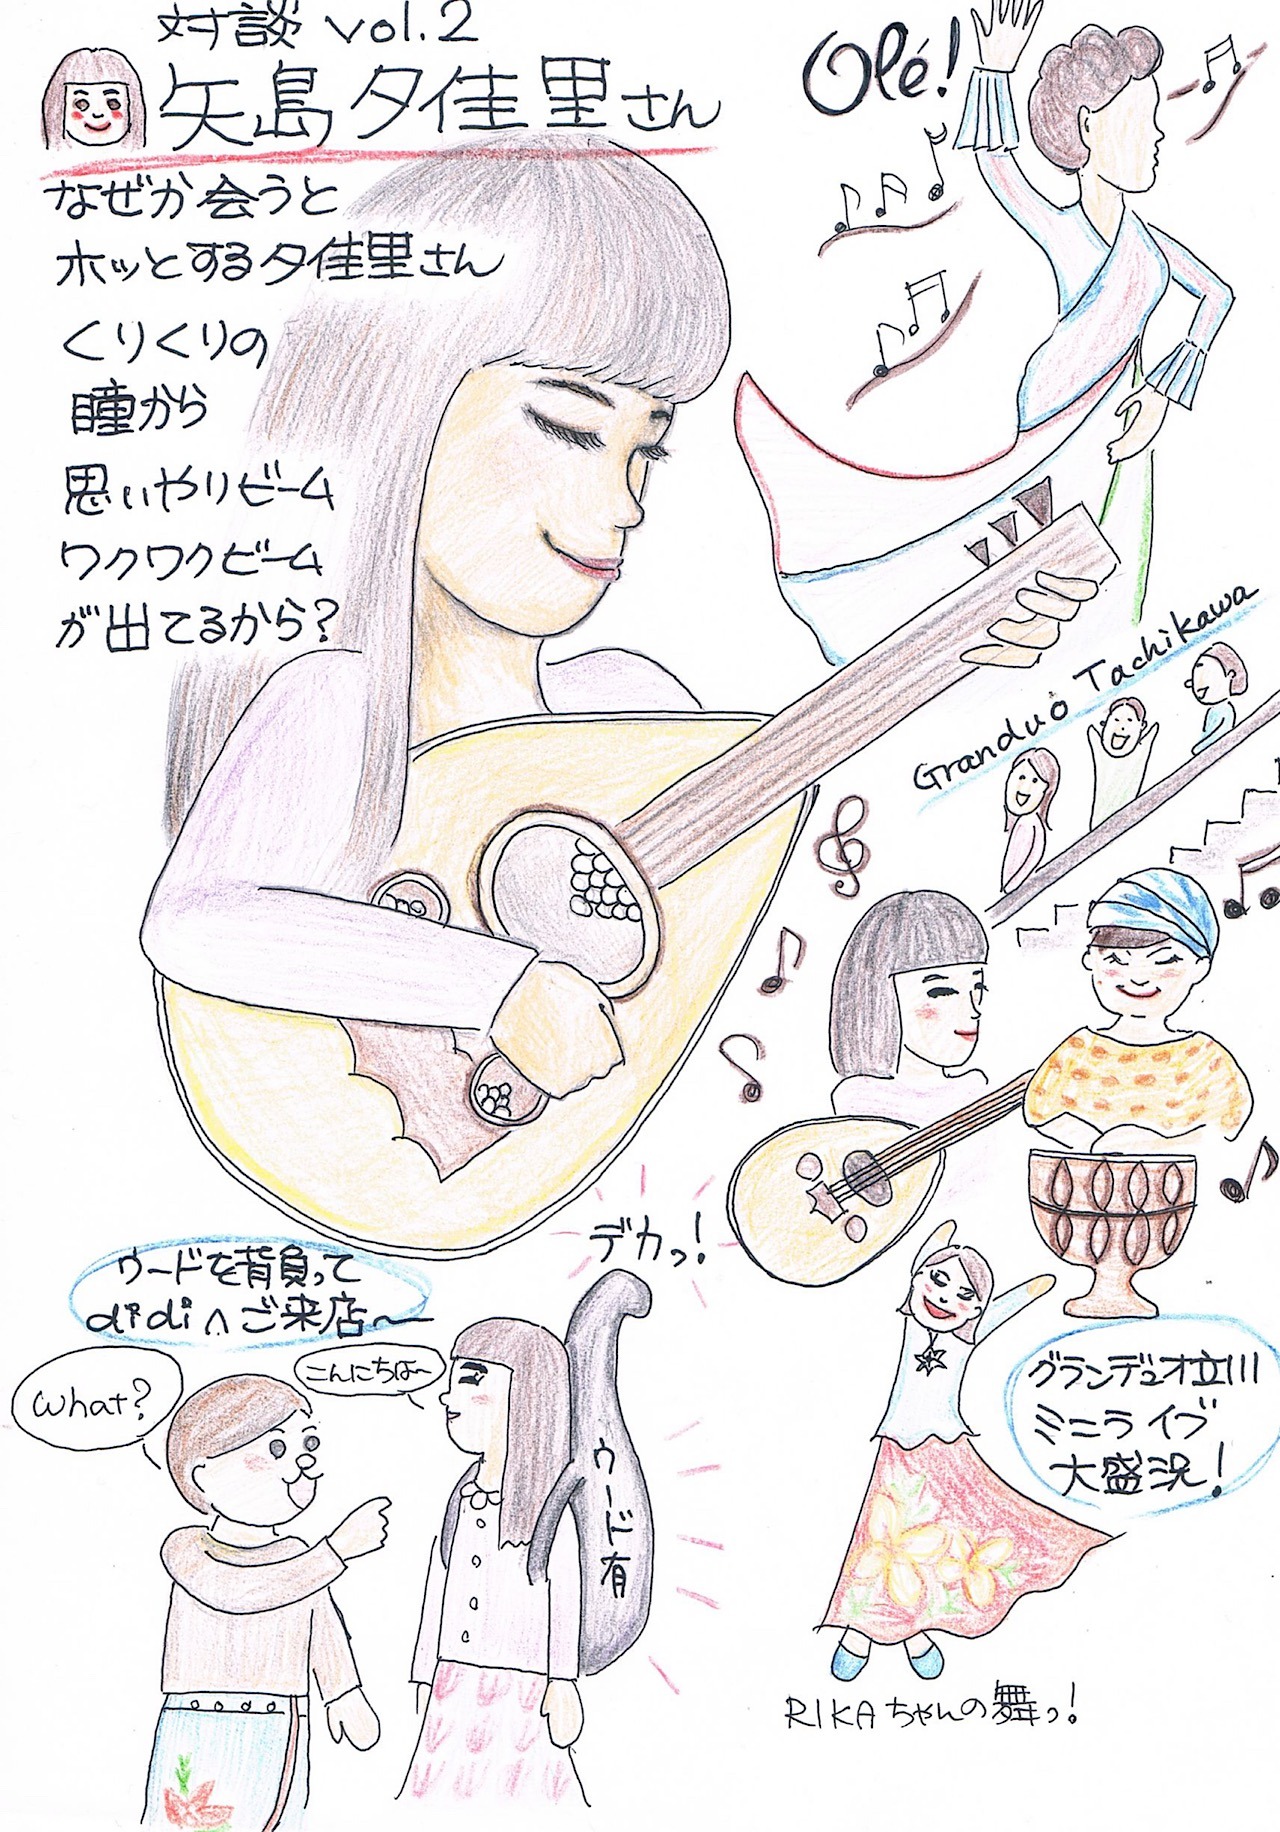 対談 vol.2
矢島夕佳里さん
なぜか会うと
ホッとする夕佳里さん
くりくりの
瞳から
思いやりビーム
ワクワクビーム
が出てるから?
Olé!
Granduo Tachikawa
デカっ!
ウードを背負って
didiへご来店〜
What?
こんにちは〜
ウード有
グランデュオ立川
ミニライブ
大盛況!
RIKAちゃんの舞っ!